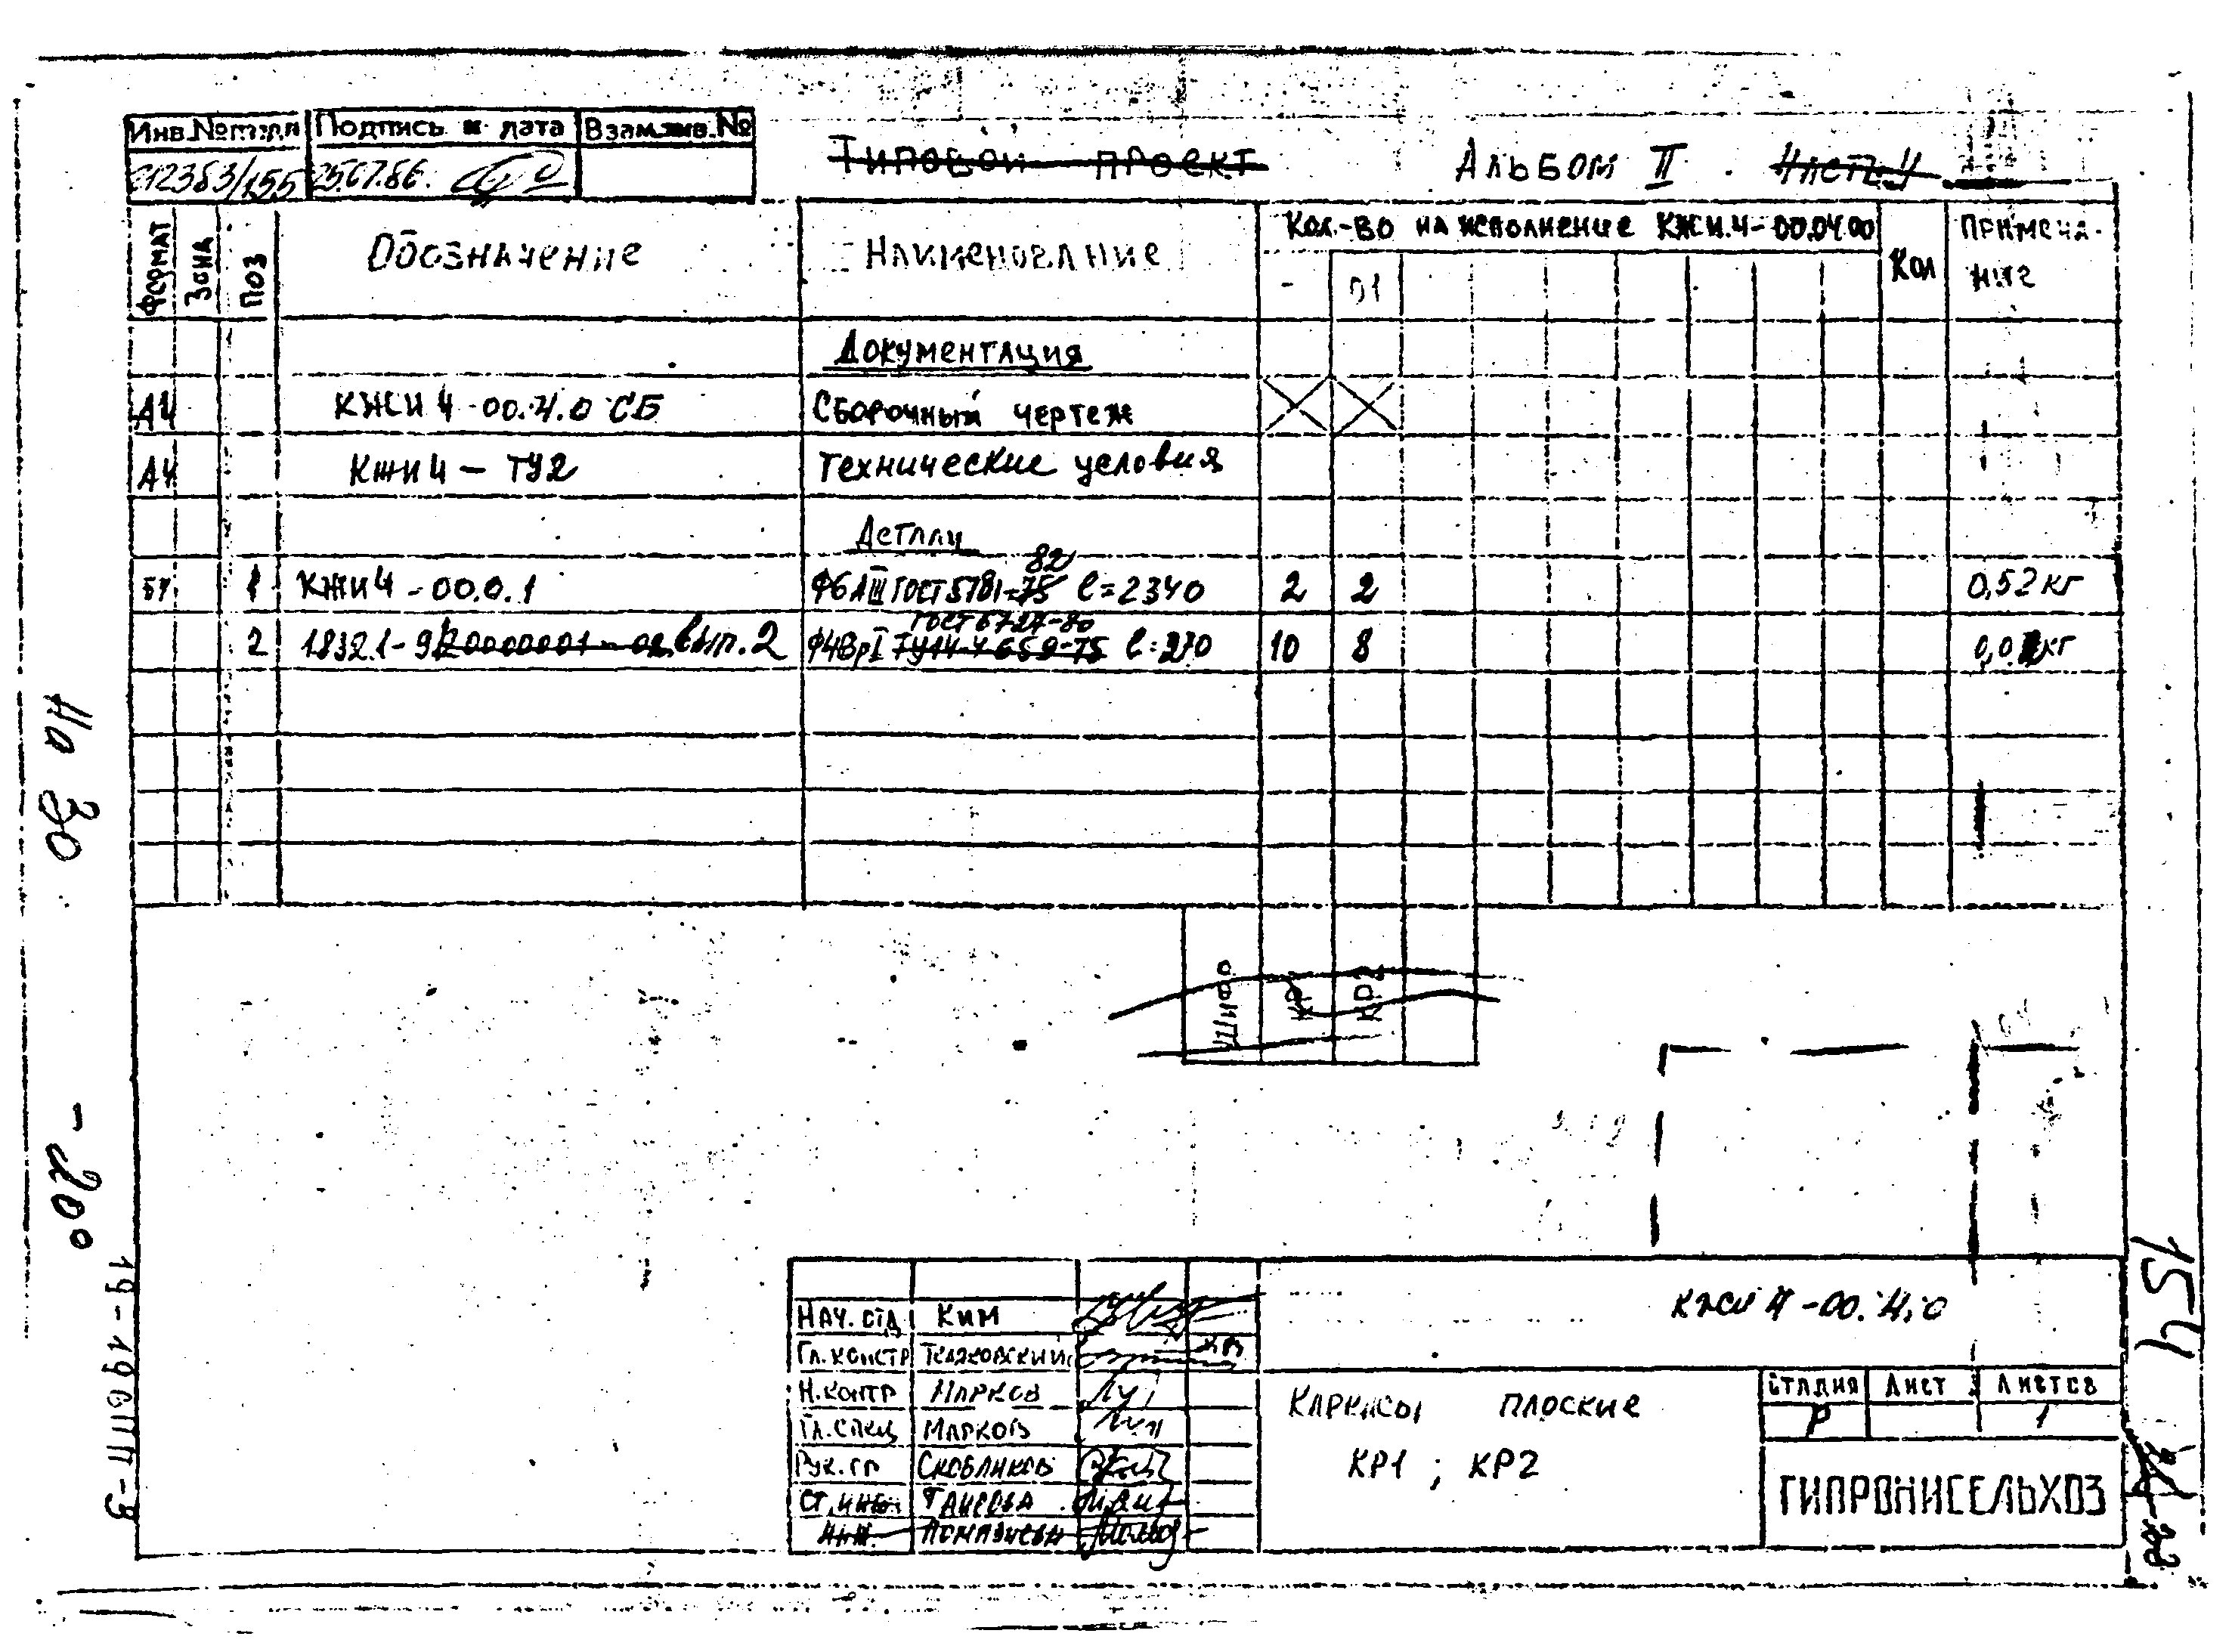 Инв.№ подл Подпись и дата Взам.инв.№
25.07.86.
Типовой проект Альбом II
Формат Зона Поз Обозначение Наименование Кол.-во на исполнение КЖИ.4-00.04.00 Кол Примеча-
ние
- 01
Документация
А4 КЖИ 4-00.4.0 СБ Сборочный чертеж
А4 КЖИ 4 - ТУ2 Технические условия
Детали
82
БЧ 1 КЖИ 4 - 00.0.1 Ф6 АIII ГОСТ 5781-75 ℓ=2340 2 2 0,52 кг
ГОСТ 6727-80
2 1.832.1-9 вып.2 Ф4ВрI ТУ14-4 659-75 ℓ=270 10 8 кг
Шифр КР1 КР2
На 30
-200
КЖИ 4-00.4.0
Нач. отд Ким
Гл. констр Теляковский
Н.контр Марков
Гл. спец Марков
Рук. гр Скобликов
Ст. инж Ганеева
Инж.
Каркасы плоские
КР1 ; КР2
Стадия Лист Листов
Р 1
ГИПРОНИСЕЛЬХОЗ
154